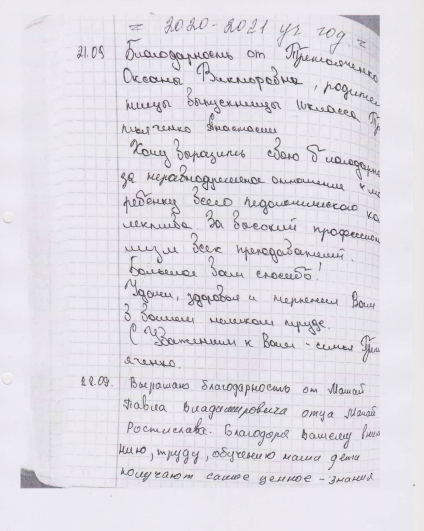 = 2020-2021 уч год =
21.09 Благодарность от
Оксаны Викторовны, родите
ницы выпускницы класса
Анастасии
Хочу выразить свою благодарн
за неравнодушное отношение к мо
ребёнку всего педагогического ко
лектива. За высокий профессион
лизм всех преподавателей.
Большое Вам спасибо!
Удачи, здоровья и терпения Вам
В Вашем нелегком труде.
С Уважением к Вам - семья
яченко.
22.09. Выражаю благодарность от Мамай
Павла Владимировича отца Мамай
Ростислава. Благодаря Вашему вни
нию, труду, обучению наши дети
получают самое ценное - знания